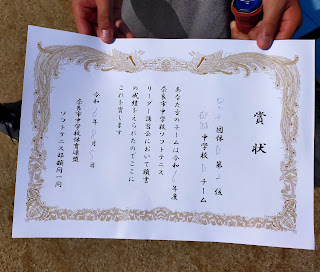 賞状
団体 第 位
中学校 チーム
あなた方のチームは令和 年度
奈良市中学校ソフトテニス
リーダー講習会において頭書
の成績をえられたのでここに
これを賞します
令和 年 月 日
奈良市中学校体育連盟
ソフトテニス部顧問一同